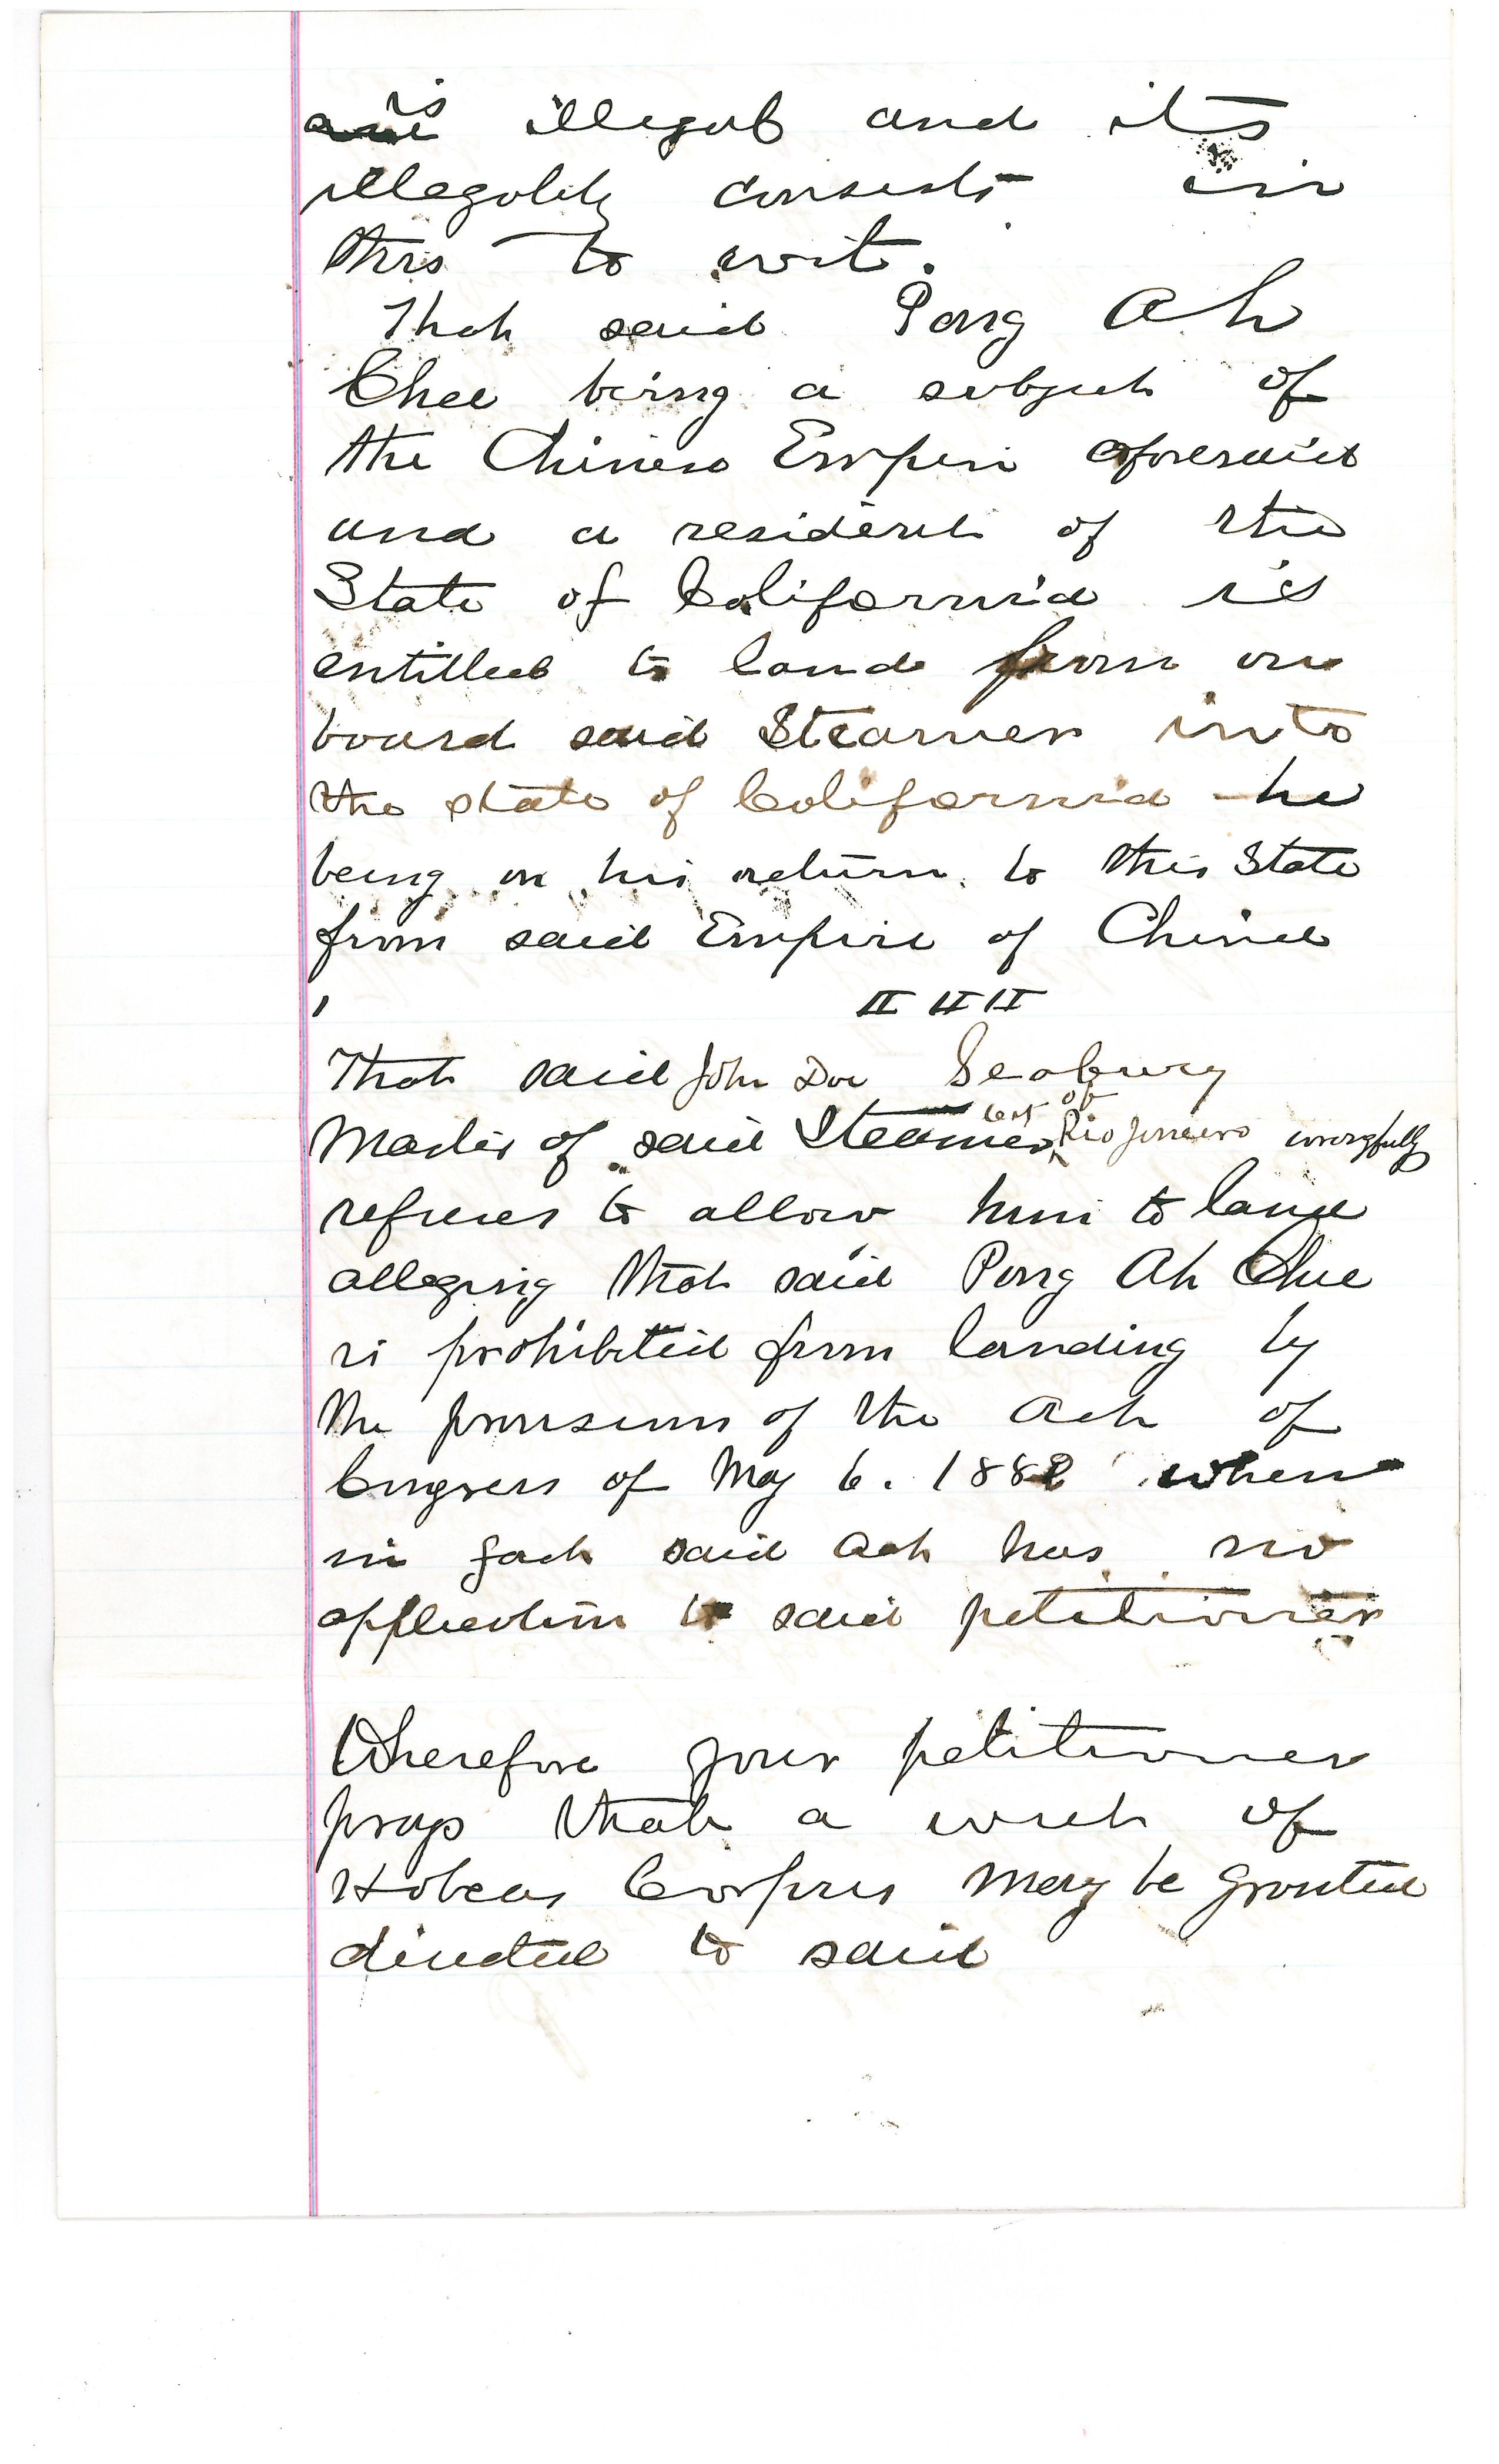 is illegal and its
illegality consists in
this to wit.
That said Pong Ah
Chee being a subject of
the Chinese Empire aforesaid
and a resident of the
State of California is
entitled to land from on
board said Steamer into
the state of California he
being on his return to this State
from said Empire of China
III
That said John Doe Seabury
Master of said Steamer City of Rio Janeiro wrongfully
refuses to allow him to land
alleging that said Pong Ah Chee
is prohibited from landing by
the provisions of the Act of
Congress of May 6. 1882 when
in fact said Act has no
application to said petitioner
Wherefore your petitioner
prays that a writ of
Habeas Corpus may be granted
directed to said